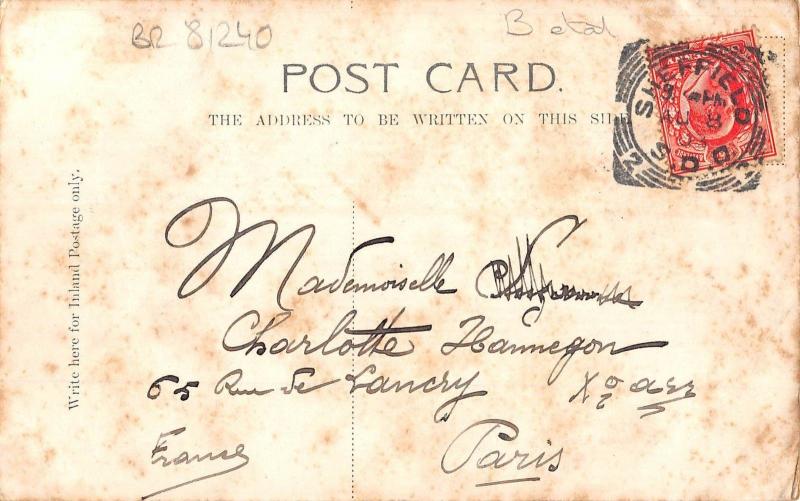 BR 81240
POST CARD.
THE ADDRESS TO BE WRITTEN ON THIS SIDE
SHEFFIELD
S.O.
2
Write here for Inland Postage only.
Mademoiselle
Charlotte Hannegon
65 Rue de Lancry Xe arr
France Paris